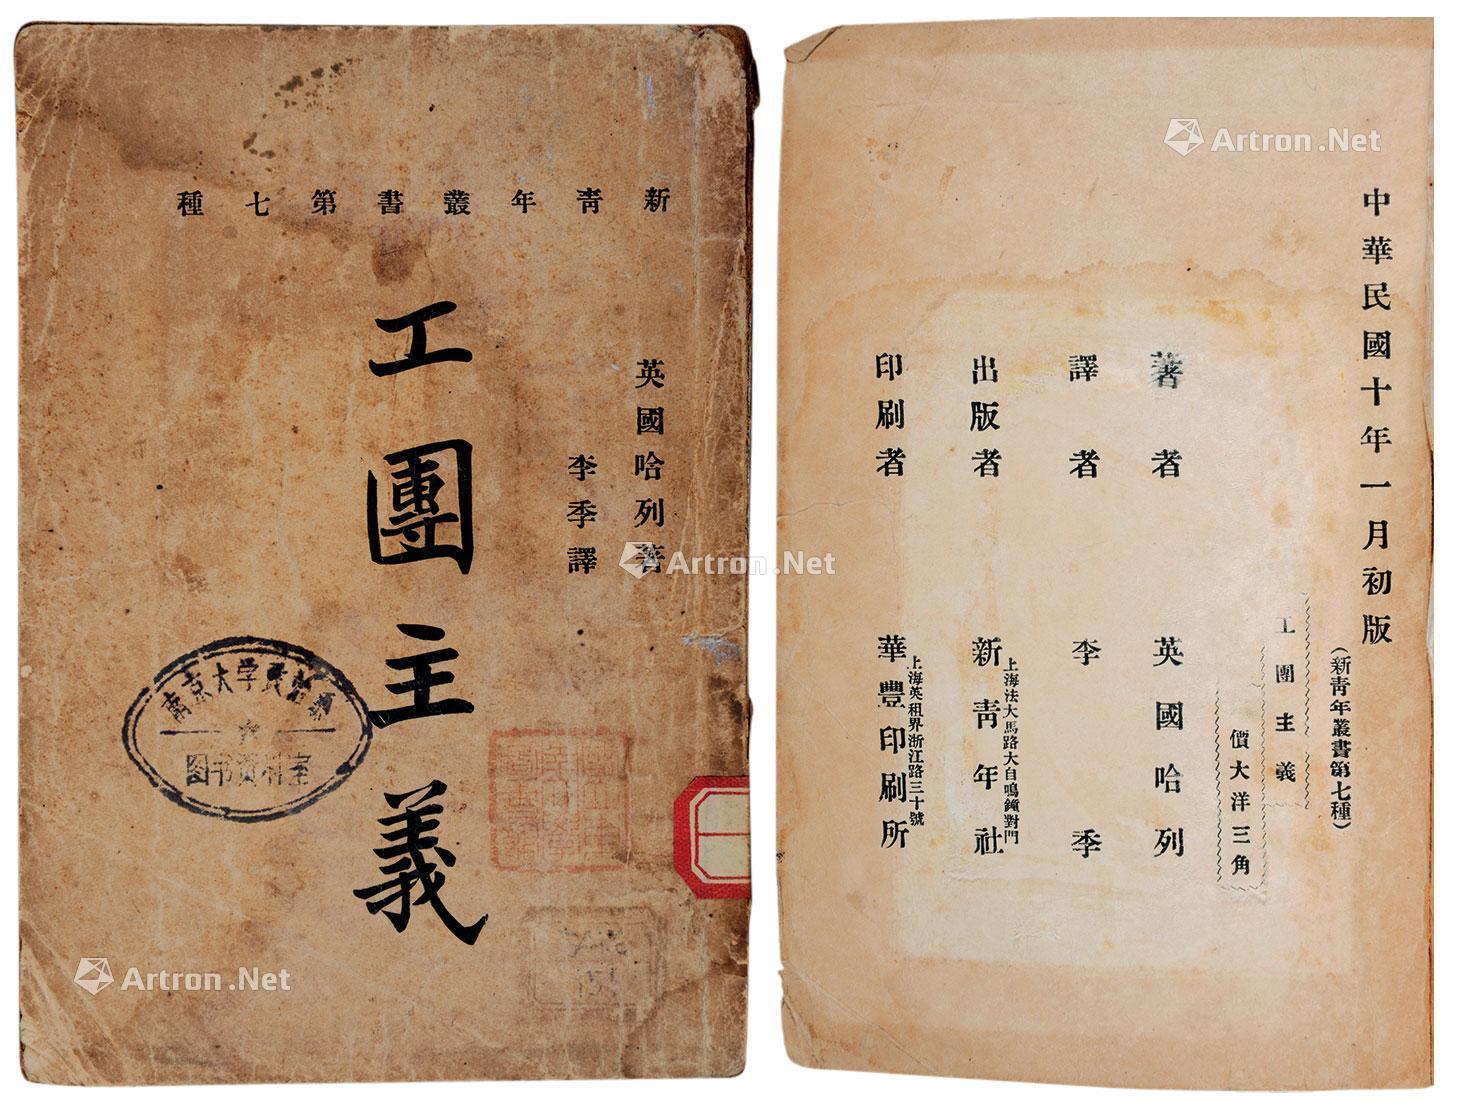 新青年叢書第七種
英國哈列著
李季譯
工團主義
图书资料室
中華民國十年一月初版
(新青年叢書第七種)
工團主義
價大洋三角
著者 英國哈列
譯者 李季
出版者 新青年社
上海法大馬路大自鳴鐘對門
印刷者 華豐印刷所
上海英租界浙江路三十號
Artron.Net
Artron.Net
Artron.Net
Artron.Net